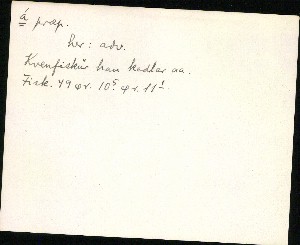 á præp.
her: adv.
Kvenfiskur han kadlar aa.
Fisk. 49 ør. 10⁵. ør. 11¹.